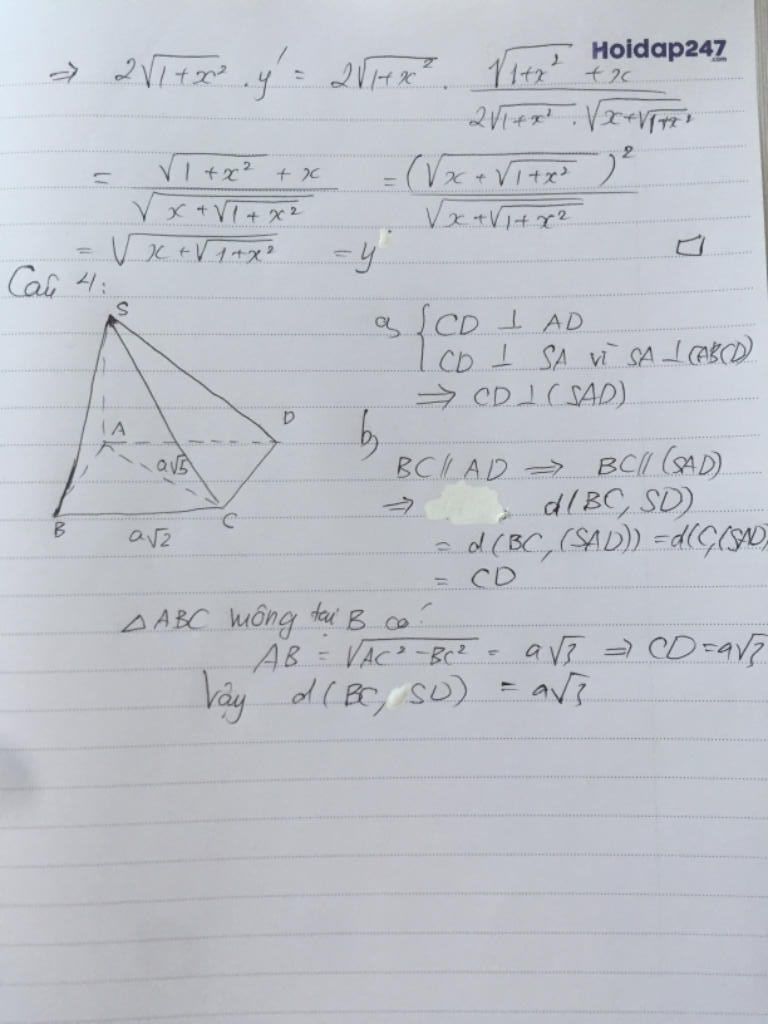 Hoidap247
.com
⇒ 2√(1+x²) . y' = 2√(1+x²) . (√(1+x²) + x) / (2√(1+x²) . √(x+√(1+x²)))
= (√(1+x²) + x) / √(x+√(1+x²)) = (√(x+√(1+x²)))² / √(x+√(1+x²))
= √(x+√(1+x²)) = y □
Câu 4:
S
A
D
a√5
B
C
a√2
a, { CD ⊥ AD
CD ⊥ SA vì SA ⊥ (ABCD)
⇒ CD ⊥ (SAD)
b,
BC // AD ⇒ BC // (SAD)
⇒ d(BC, SD)
= d(BC, (SAD)) = d(C, (SAD)
= CD
△ABC vuông tại B có:
AB = √(AC² - BC²) = a√3 ⇒ CD = a√3
Vậy d(BC, SD) = a√3